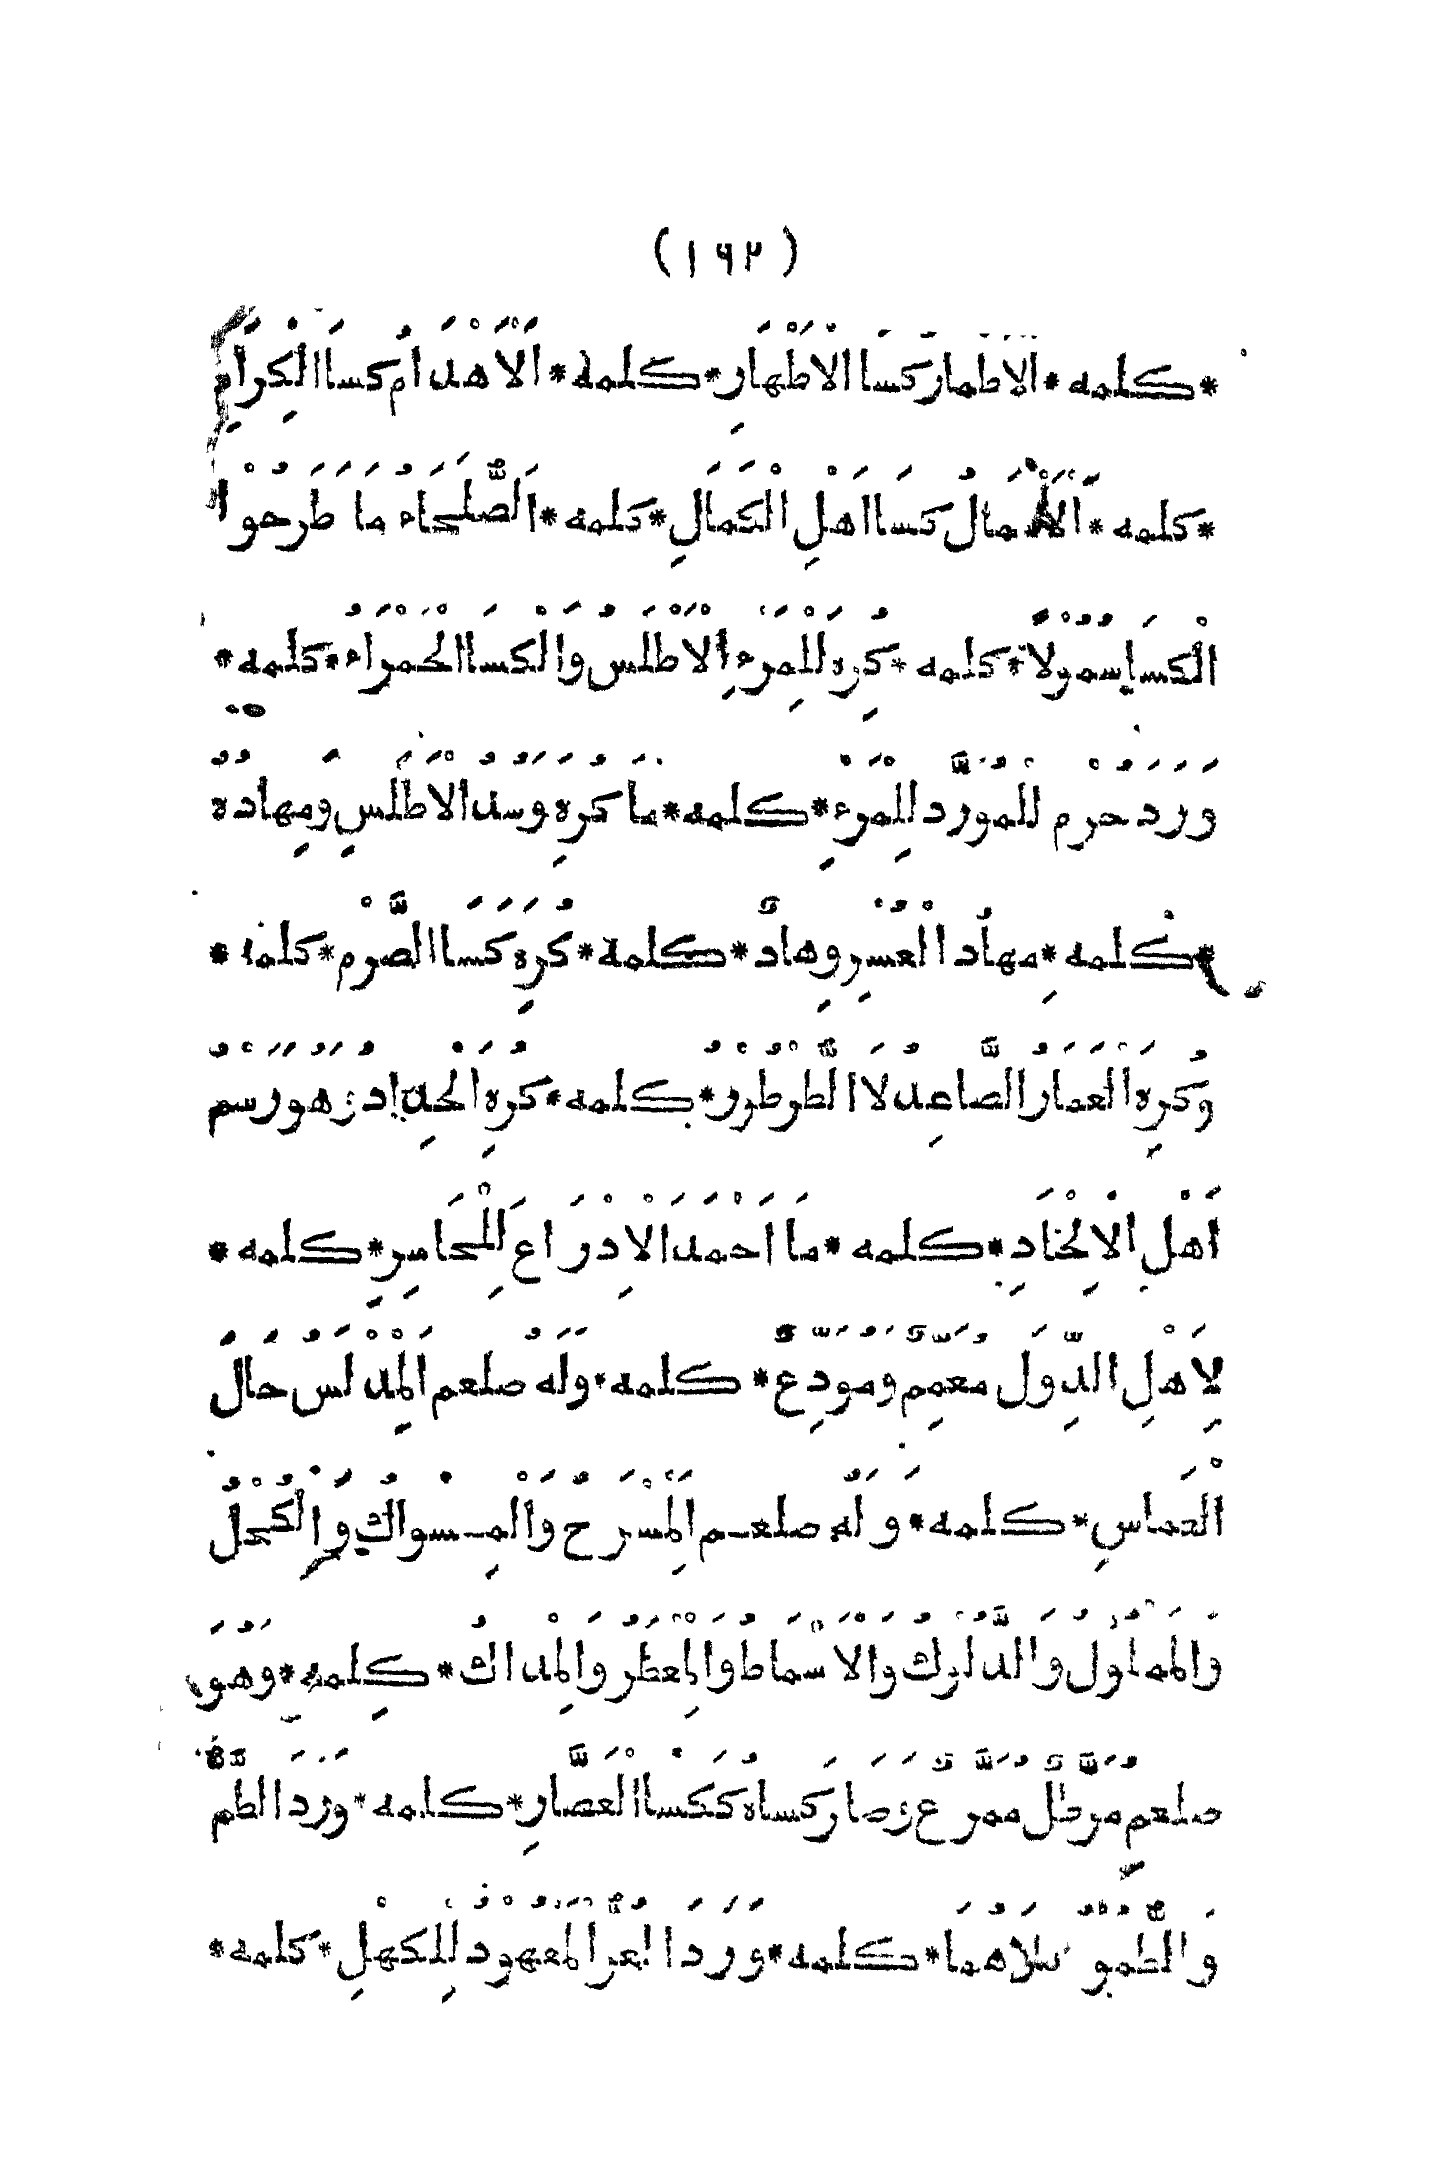 (۱۶۲)
*كلمه*اَلْاَطْمارُ كَسَا الْاَطْهَارِ*كلمه*اَلْاَهْدَامُ كسَا الْكِرَامِ
*كلمه*اَلْاَسْمَالُ كسَا اهْلِ الْكَمَالِ*كلمه*اَلصُّلَحَاءُ مَا طَرَحُوْا
الْكسَا سُمُوْلًا*كلمه*كُرِهَ لِلْمَرْءِ الْاَطْلَسُ وَالْكسَا الْحَمْرَاءُ*كلمه*
وَرَدَ حُرِمَ الْمُوَرَّدُ لِلْمَرْءِ*كلمه*مَا كُرِهَ وسَدُ الْاَطْلَسِ وَمِهَادُهُ
*كلمه*مِهَادُ الْعُسْرِ وِهَادٌ*كلمة*كُرِهَ كَسَا الصَّرْمِ*كلمه*
وَكُرِهَ الْعَمَارُ الصَّاعِدُ لَا الطُّرْطُوْرُ*كلمه*كُرِهَ الْحِدَادُ وَهُوَ رَسْمُ
اَهْلِ الْاِلْحَادِ*كلمه*مَا اَحْمَدَ الْاِدْرَاعَ لِلْمَحَاسِرِ*كلمه*
لِاَهْلِ الدِّوَلِ مُعَمِّمٌ وَمُودِعٌ*كلمه*وَلَهُ صلعم الْمِدْلَسُ حَالَ
الْعَمَاسِ*كلمه*وَلَهُ صلعم الْمِسْرَحُ وَالْمِسْوَاكُ وَالْكُحْلُ
وَالْمُلْمُوْلُ وَالدُّلُوْكُ وَالْاَسْمَاطُ وَالْمِعْطَرُ وَالْمِدَاكُ*كلمه*وَهُوَ
صلعم مُرَطَّلٌ مُمَرَّعٌ وَصَارَ كَسَاهُ كَكَسَا الْعَصَّارِ*كلمه*وَرَدَ الطَّمُّ
وَالطُّمُوْ كِلَاهُمَا*كلمه*وَرَدَ الْعُرَّ الْمَعْهُوْدُ لِلْكَهْلِ*كلمه*